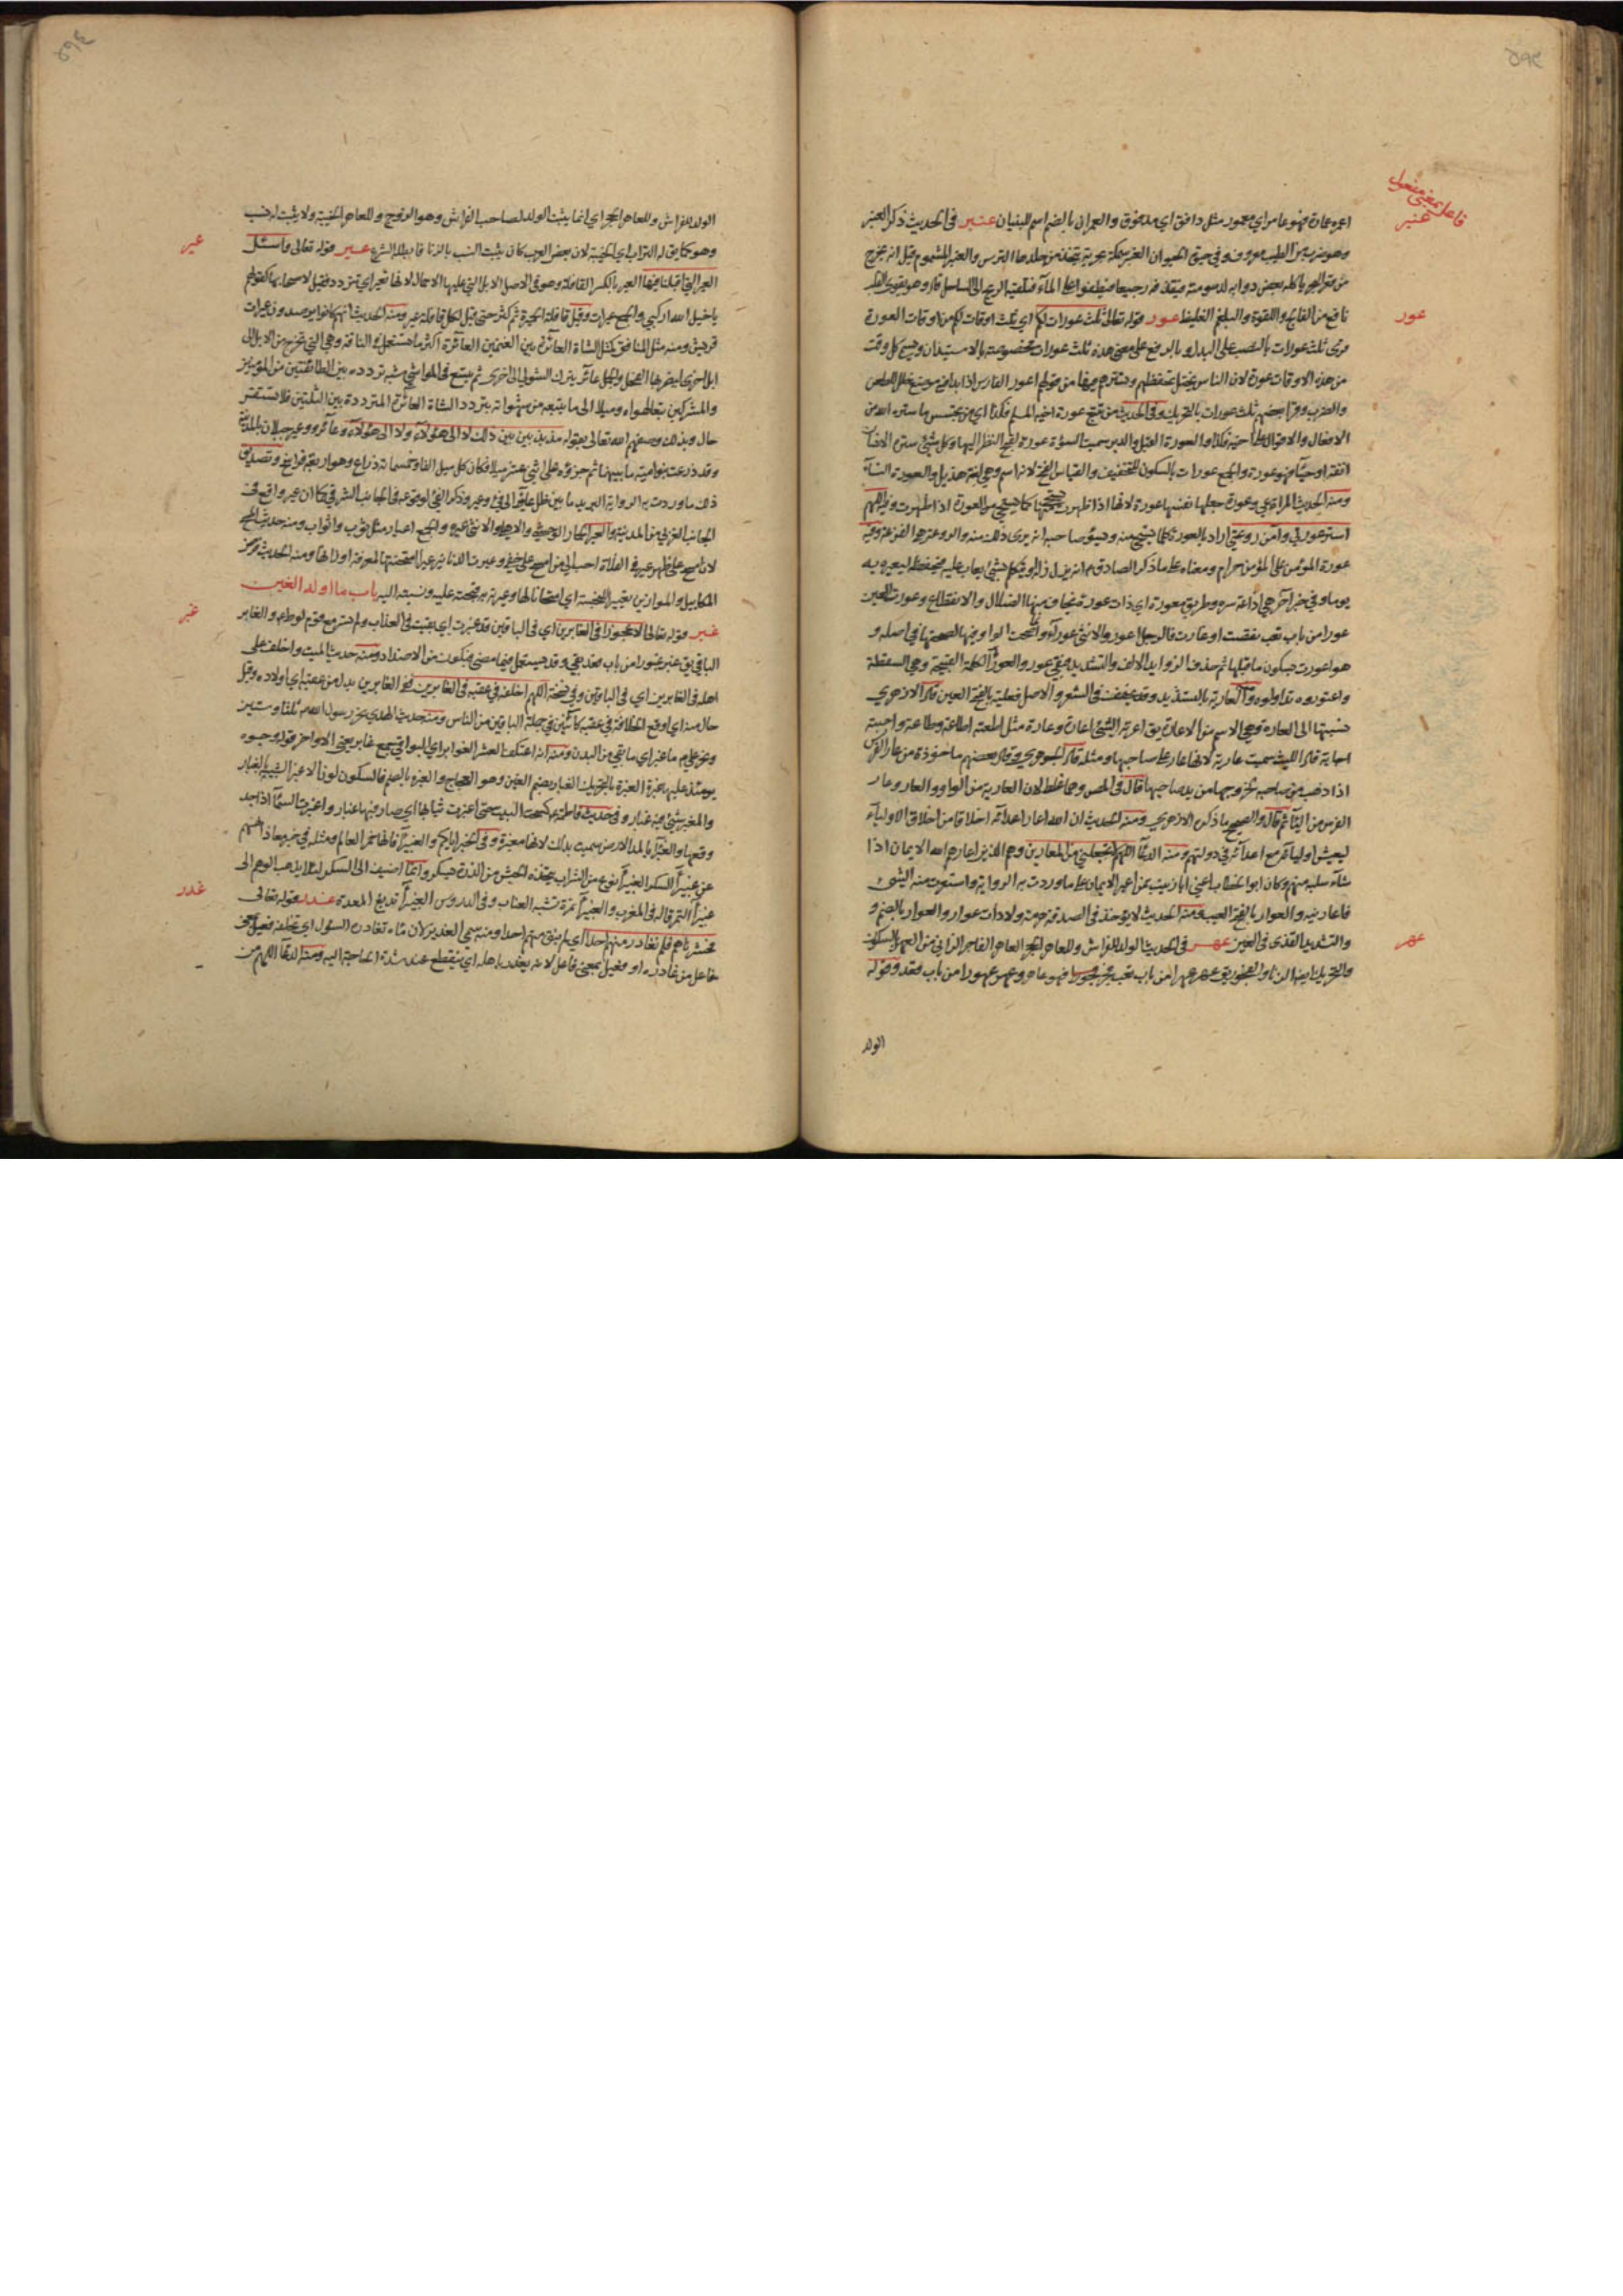 فاعل بمعنى مفعول
عنبر
اعمره عمارة فهو عامر اي معمور مثل دافق اي مدفوق والعمران بالضم اسم للبنيان عنبر في الحديث ذكر العنبر
وهو ضرب من الطيب معروف وفي حيوة الحيوان العنبر سمكة بحرية يتخذ من جلدها الترس والعنبر المشموم قيل انه يخرج
من قعر البحر ياكله بعض دوابه لدسومته فيقذفه رجيعا فيطفوا على المآء فتلقيه الريح الى الساحل وهو يقوي القلب
نافع من الفالج واللقوة والبلغم الغليظ عور قوله تعالى ثلث عورات لكم اي ثلث اوقات لكم من اوقات العورة
عور
وقرئ ثلث عورات بالنصب على البدل وبالرفع على معنى هذه ثلث عورات مخصوصة بالاستيذان وسمي كل وقت
من هذه الاوقات عورة لان الناس يختل تحفظهم وتسترهم فيها من قولهم اعور الفارس اذا بدا فيه موضع خلل للطعن
والضرب وقرا بعضهم ثلث عورات بالتحريك وفي الحديث من تتبع عورة اخيه المسلم فكذا اي من يتجسس ما ستره الله من
الافعال والاقوال على اخيه فكذا والعورة القبل والدبر سميت السوءة عورة لقبح النظر اليها وكل شئ ستره الانسان
انفة او حيآء فهو عورة والجمع عورات بالسكون للتخفيف والقياس الفتح لانه اسم وهي لغة هذيل والعورة النسآء
ومنه الحديث المراة عي وعورة جعلها نفسها عورة لانها اذا ظهرت يستحيى منها كما يستحيى من العورة اذا ظهرت وفيه اللهم
استر عورتي وآمن روعتي اراد بالعورة كلما يستحيى منه ويسوء صاحبه ان يرى ذلك منه والروعة هي الفزعة وفيه
عورة المؤمن على المؤمن حرام ومعناه على ما ذكره الصادق ع ان يزل زلة او يتكلم بشئ يعاب عليه فيحفظه ليعيره به
يوما وفي خبر آخر هي اذاعة سره وطريق معورة اي ذات عورة يخاف فيها الضلال والانقطاع وعورت العين
عورا من باب تعب نقصت او غارت فالرجل اعور والانثى عورآء وانما صحت الواو فيها لصحتها في اصله و
هو اعورت بسكون ما قبلها ثم حذف الزوايد الالف والتشديد فبقي عور والعورآء الكلمة القبيحة وهي السقطة
واعتوروه تداولوه والعارية بالتشديد وقد يخفف في الشعر والاصل فعلية بالفتح العين قال الازهري
نسبتها الى العارة وهي الاسم من الاعارة يق اعرته الشئ اعارة وعارة مثل اطعته اطاعة وطاعة واجبته
اجابة قال الليث سميت عارية لانها عار على صاحبها ومثله قال الجوهري وقال بعضهم ماخوذة من عار الفرس
اذا ذهب من صاحبه لخروجها من يد صاحبها قال في المص وهما غلط لان العارية من الواو والعار وعار
الفرس من اليآء ثم قال والصحيح ما ذكره الازهري ومنه الحديث ان الله اعار اعدآئه اخلاقا من اخلاق اوليآئه
ليعيش اوليآئه مع اعدآئه في دولتهم ومنه الدعآء اللهم لا تجعلني من المعارين وهم الذين اعارهم الله الايمان اذا
شآء سلبه منهم وكان ابو الخطاب اعني ابا زينب ممن اعير الايمان على ما وردت به الرواية واستعرت منه الشئ
فاعارنيه والعوار بالفتح العيب ومنه الحديث لا يؤخذ في الصدقة هرمة ولا ذات عوار والعوار بالضم و
والتشديد القذى في العين عهر في الحديث الولد للفراش وللعاهر الحجر العاهر الفاجر الزاني من العهر بالسكون
عهر
والتحريك ايضا الزنا والفجور يق عهر عهرا من باب تعب فجر فجورا فهو عاهر وعهر عهورا من باب قعد وقوله
الولد
الولد للفراش وللعاهر الحجر اي انما يثبت الولد لصاحب الفراش وهو الزوج وللعاهر الخيبة ولا يثبت له نسب
وهو كما يق له التراب اي الخيبة لان بعض العرب كان يثبت النسب بالزنا فابطله الشرع عير قوله تعالى واسئل
عير
العير التي اقبلنا فيها العير بالكسر القافلة وهو في الاصل الابل التي عليها الاحمال لانها تعير اي تتردد فقيل لاصحابها كقولهم
يا خيل الله اركبي والجمع عيرات وقيل قافلة الحمير ثم كثر حتى قيل لكل قافلة عير ومنه الحديث انهم كانوا يرصدون عيرات
قريش ومنه مثل المنافق كمثل الشاة العآئرة بين الغنمين العآئرة اكثر ما يستعمل في الناقة وهي التي تخرج من الابل الى
ابل اخرى ليضربها الفحل والجمل عآئر يترك الشول الى اخرى ثم يتسع في المواشي شبه تردده بين الطآئفتين من المؤمنين
والمشركين تبعا لهواه وميلا الى ما يتبعه من شهواته بتردد الشاة العآئرة المترددة بين الثلتين فلا تستقر على
حال وبذلك وصفهم الله تعالى بقوله مذبذبين بين ذلك لا الى هؤلآء ولا الى هؤلآء وعآئر ووعير جبلان بالمدينة
وقد ذرعت بنو امية ما بينهما ثم جزؤه على اثني عشر ميلا فكان كل ميل الفا وخمسمائة ذراع وهو اربعة فراسخ وتصديق
ذلك ما وردت به الرواية البريد ما بين ظل عآئر الى فيء وعير وذكر الفيء لوقوعه في الجانب الشرقي كما ان عير واقع في
الجانب الغربي من المدينة والعير الحمار الوحشي والاهلي والانثى عيرة والجمع اعيار مثل ثوب واثواب ومنه حديث المسح
لان امسح على ظهر عير في الفلاة احب الي من ان امسح على خفي وعيرت الدنانير عيرا امتحنتها لمعرفة اوزانها ومنه الحديث فرض
المكاييل والموازين تعيير البخسة اي امتحانا لها وعيرته به قبحته عليه ونسبته اليه باب ما اوله الغين
غبر قوله تعالى الا عجوزا في الغابرين اي في الباقين قد غبرت اي بقيت في العذاب ولم تسر مع قوم لوط ع والغابر
غبر
الباقي يق غبر غبورا من باب قعد بقي وقد يستعمل فيما مضى فيكون من الاضداد ومنه حديث الميت واخلف على
اهله في الغابرين اي في الباقين وفي نسخة اللهم اخلفه في عقبه في الغابرين فقوله الغابرين بدل من عقبه اي اولاده وقيل
حال منه اي اوقع الخلافة في عقبه كآئنين في جملة الباقين من الناس ومنه حديث الهدي نحر رسول الله ص ثلثا وستين
ونحر علي ع ما غبر اي ما بقي من البدن ومنه انه اعتكف العشر الغوابر اي البواقي جمع غابر يعني الاواخر قوله وجوه
يومئذ عليها غبرة الغبرة بالتحريك الغبار بضم الغين وهو العجاج والغبرة بالضم فالسكون لون الاغبر الشبيه بالغبار
والمغبر شئ فيه غبار وفي حديث فاطمة ع كسحت البيت حتى اغبرت ثيابها اي صار فيها غبار واغبرت السمآء اذا جد
وقعها والغبرآء بالمد الارض سميت بذلك لانها مغبرة وفي الخبر اياكم والغبيرآء فانها خمر العالم ومثله في خبر معاذ انههم
عن غبيرآء السكر الغبيرآء نوع من الشراب يتخذه الحبش من الذرة يسكر وانما اضيف الى السكر لئلا يذهب الوهم الى
غبيرآء التمر قاله في المغرب والغبيرآء ثمرة تشبه العناب وفي الدروس الغبيرآء تدبغ المعدة غدر قوله تعالى
غدر
فحشرناهم فلم نغادر منهم احدا اي لم نبق منهم احدا ومنه سمي الغدير لان مآء تغادره السيول اي تخلفه فعيل بمعنى
مفاعل من غادره او فعيل بمعنى فاعل لانه يغدر باهله اي ينقطع عند شدة الحاجة اليه ومنه الدعآء اللهم من